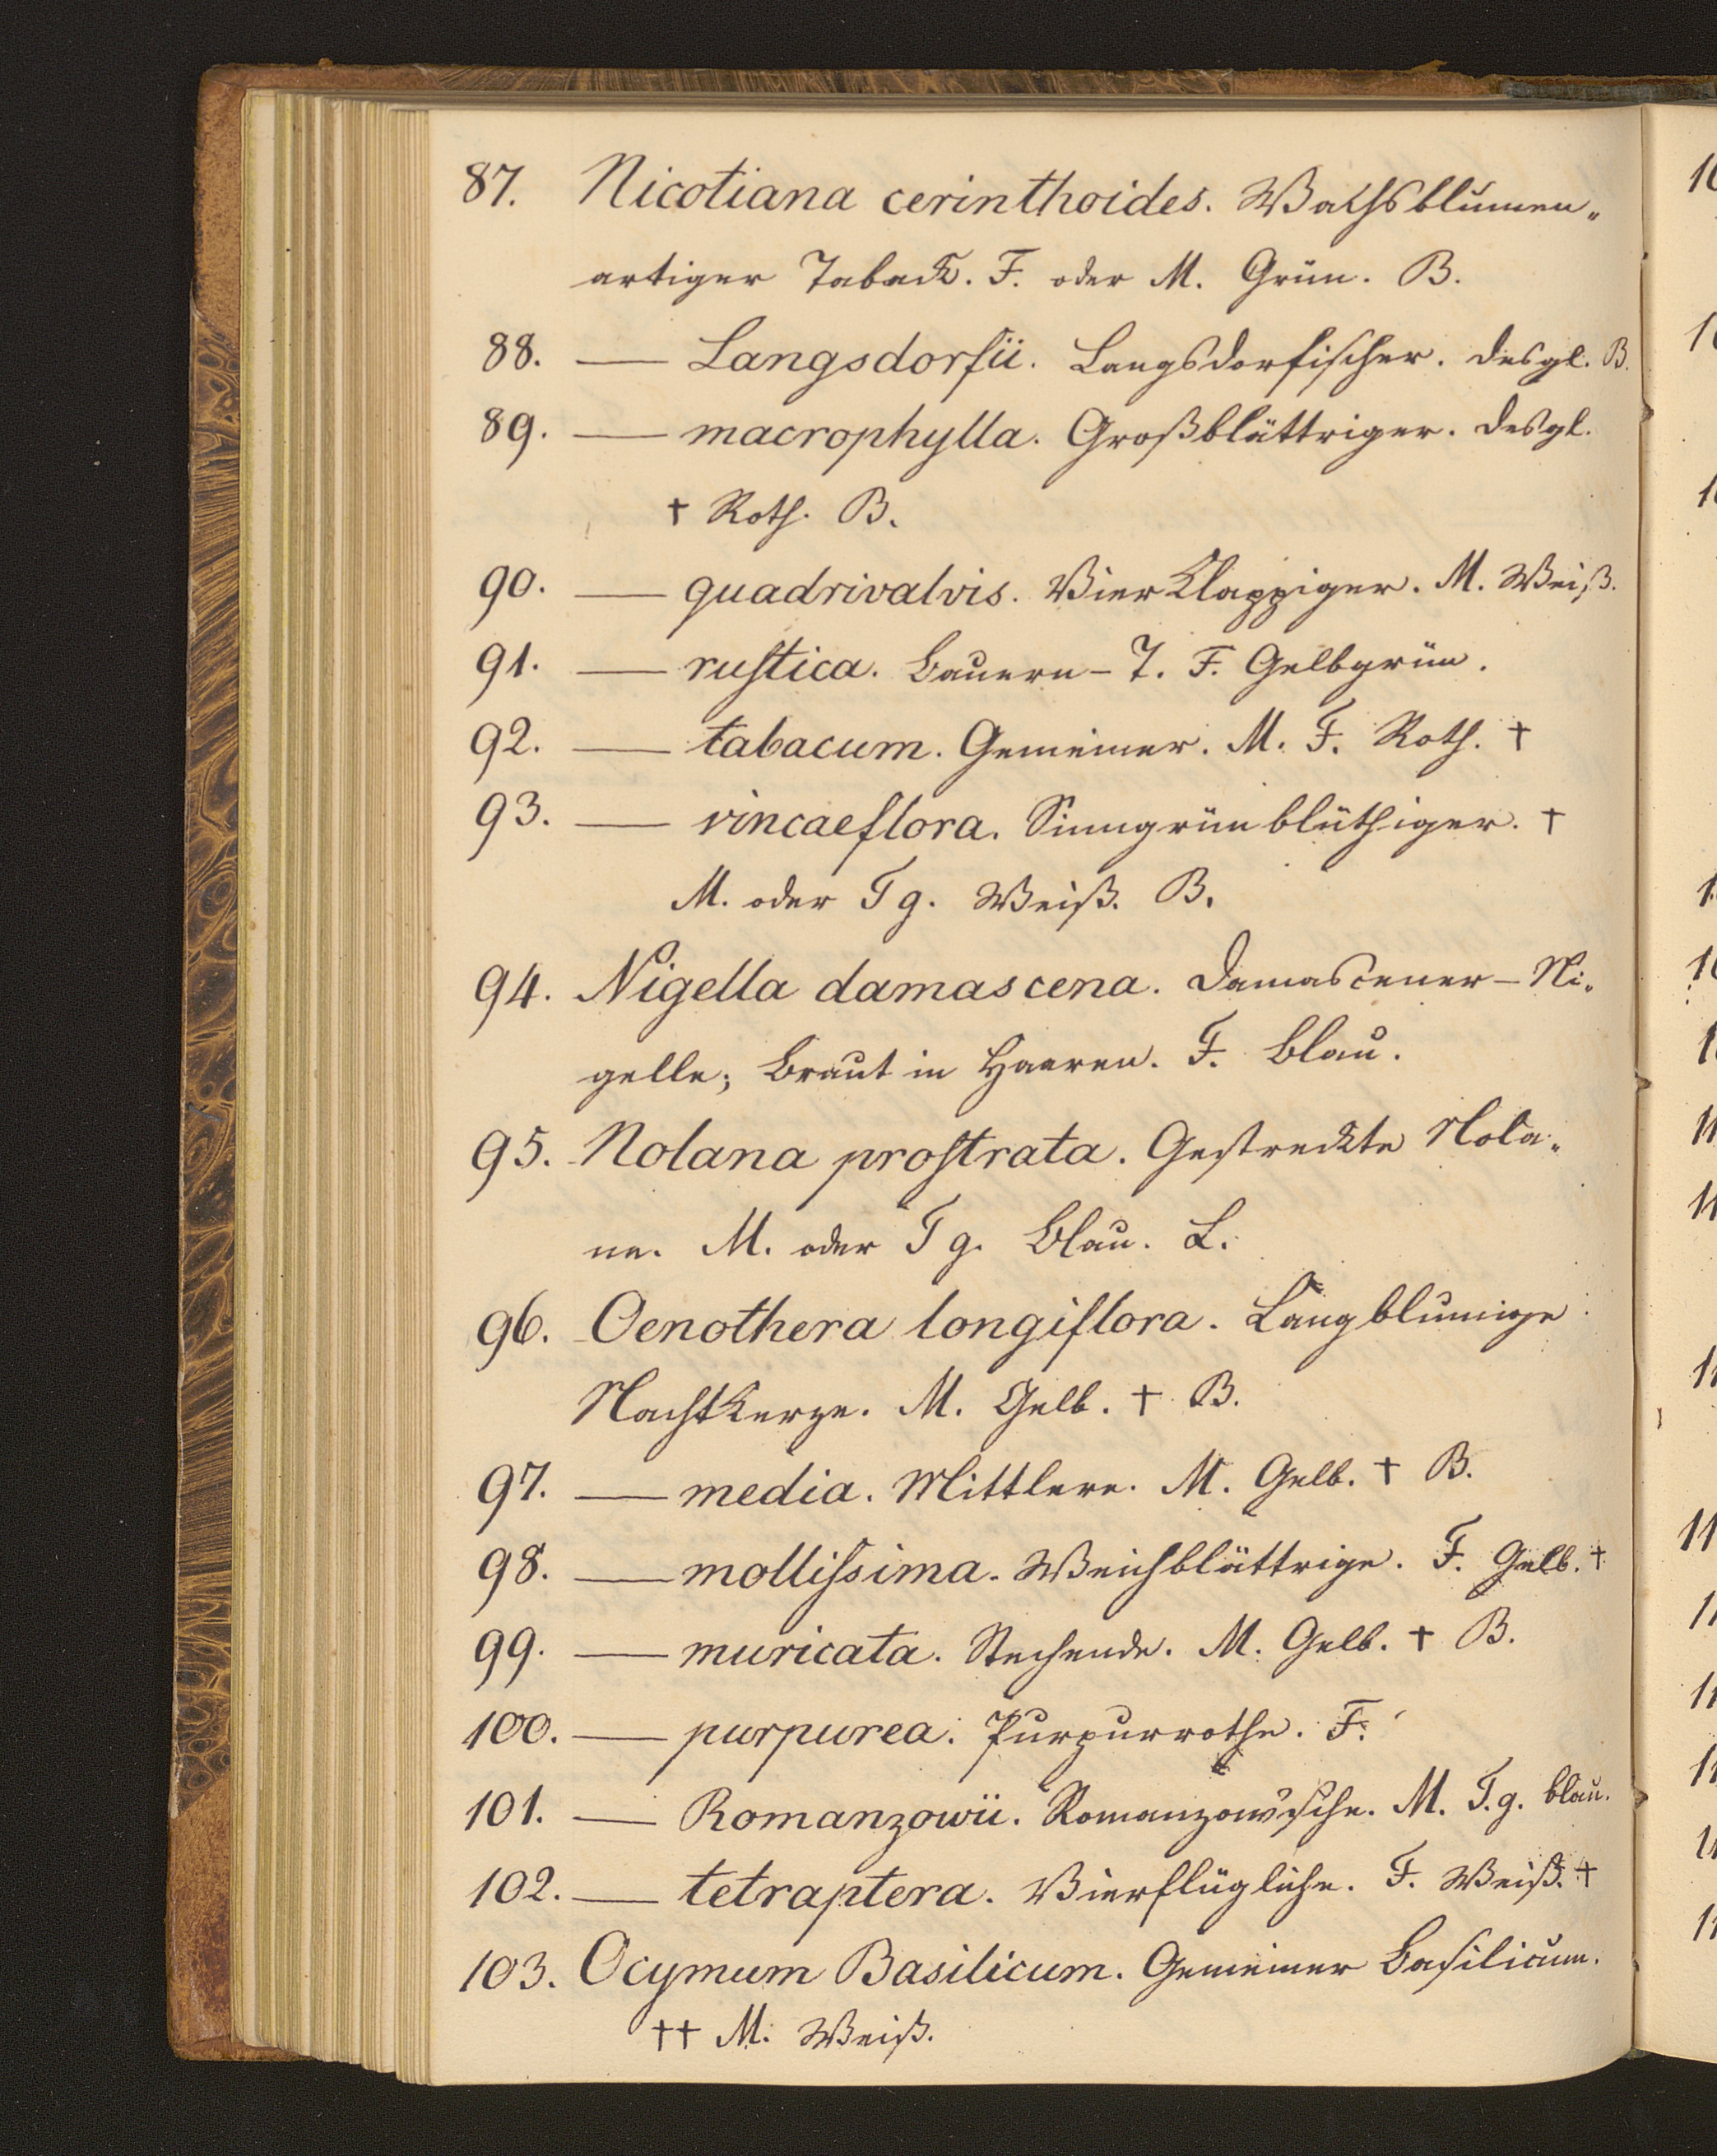 87. Nicotiana cerinthoides. Wachsblumen„
artiger Taback. F. oder M. Grün. B.
88. — Langsdorfii. Langsdorfischer. desgl. B.
89. — macrophylla. Großblättriger. desgl.
† Roth. B.
90. — quadrivalvis. Vierklappiger. M. Weiß.
91. — ruſtica. Bauern-T. F. Gelbgrün.
92. — tabacum. Gemeiner. M. F. Roth. †
93. — vincaeflora. Sinngrünblüthiger. †
M. oder Tg. Weiß. B.
94. Nigella damascena. Damascener-Ni„
gelle; Braut in Haaren. F. Blau.
95. Nolana proſtrata. Gestreckte Nola„
ne. M. oder Tg. Blau. L.
96. Oenothera longiflora. Langblumige
Nachtkerze. M. Gelb. † B.
97. — media. Mittlere. M. Gelb. † B.
98. — molliſsima. Weichblättrige. F. Gelb. †
99. — muricata. Stechende. M. Gelb. † B.
100. — purpurea. Purpurrothe. F.
101. — Romanzowii. Romanzowische. M. T.g. blau.
102. — tetraptera. Vierflügliche. F. Weiß. †
103. Ocymum Basilicum. Gemeiner Basilicum.
†† M. Weiß.